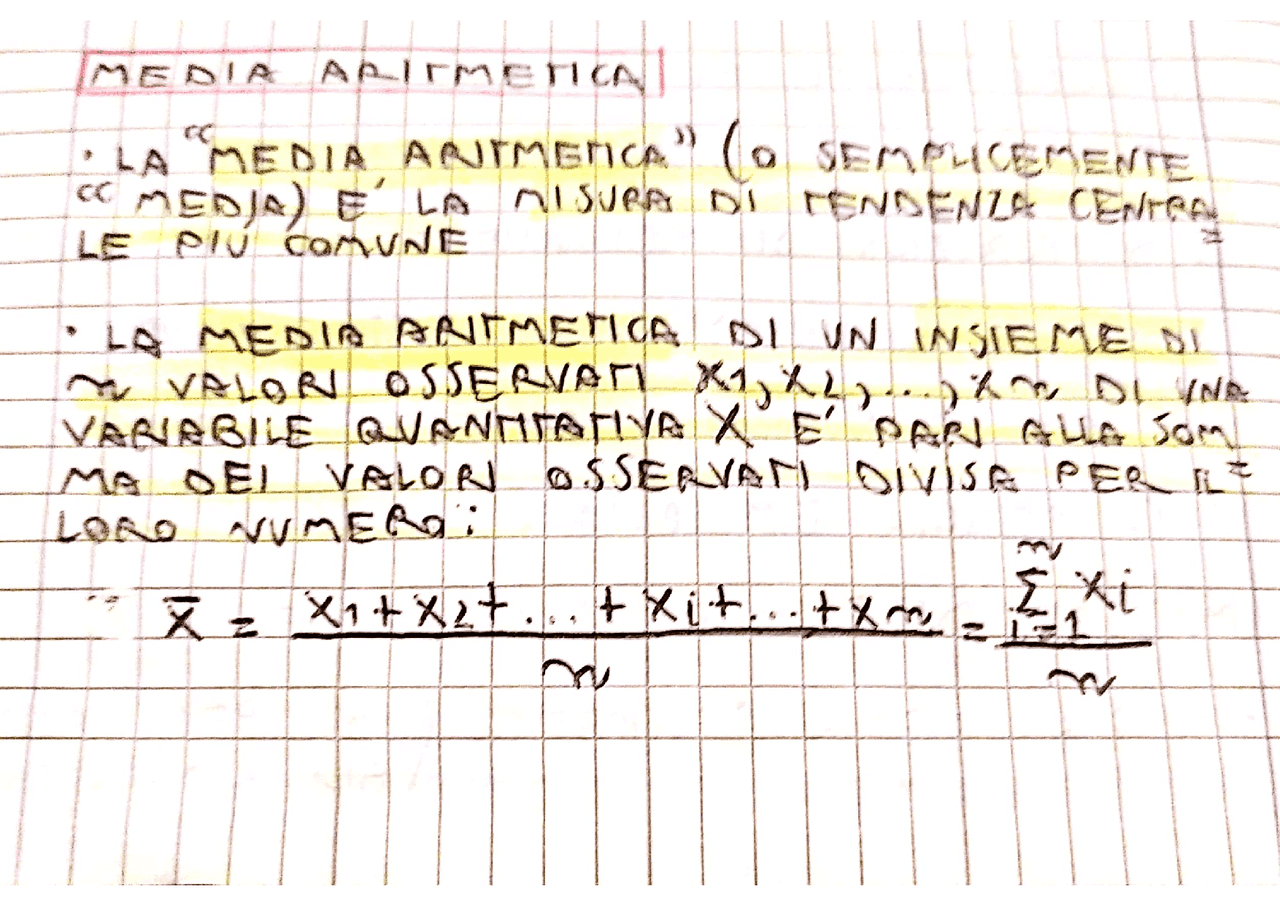 MEDIA ARITMETICA
• LA “MEDIA ARITMETICA” (O SEMPLICEMENTE
“MEDIA) E' LA MISURA DI TENDENZA CENTRA=
LE PIÙ COMUNE
• LA MEDIA ARITMETICA DI UN INSIEME DI
n VALORI OSSERVATI x1, x2, ..., xn DI UNA
VARIABILE QUANTITATIVA X E' PARI ALLA SOM=
MA DEI VALORI OSSERVATI DIVISA PER IL
LORO NUMERO:
x̄ = (x1 + x2 + ... + xi + ... + xn) / n = (∑_{i=1}^{n} xi) / n